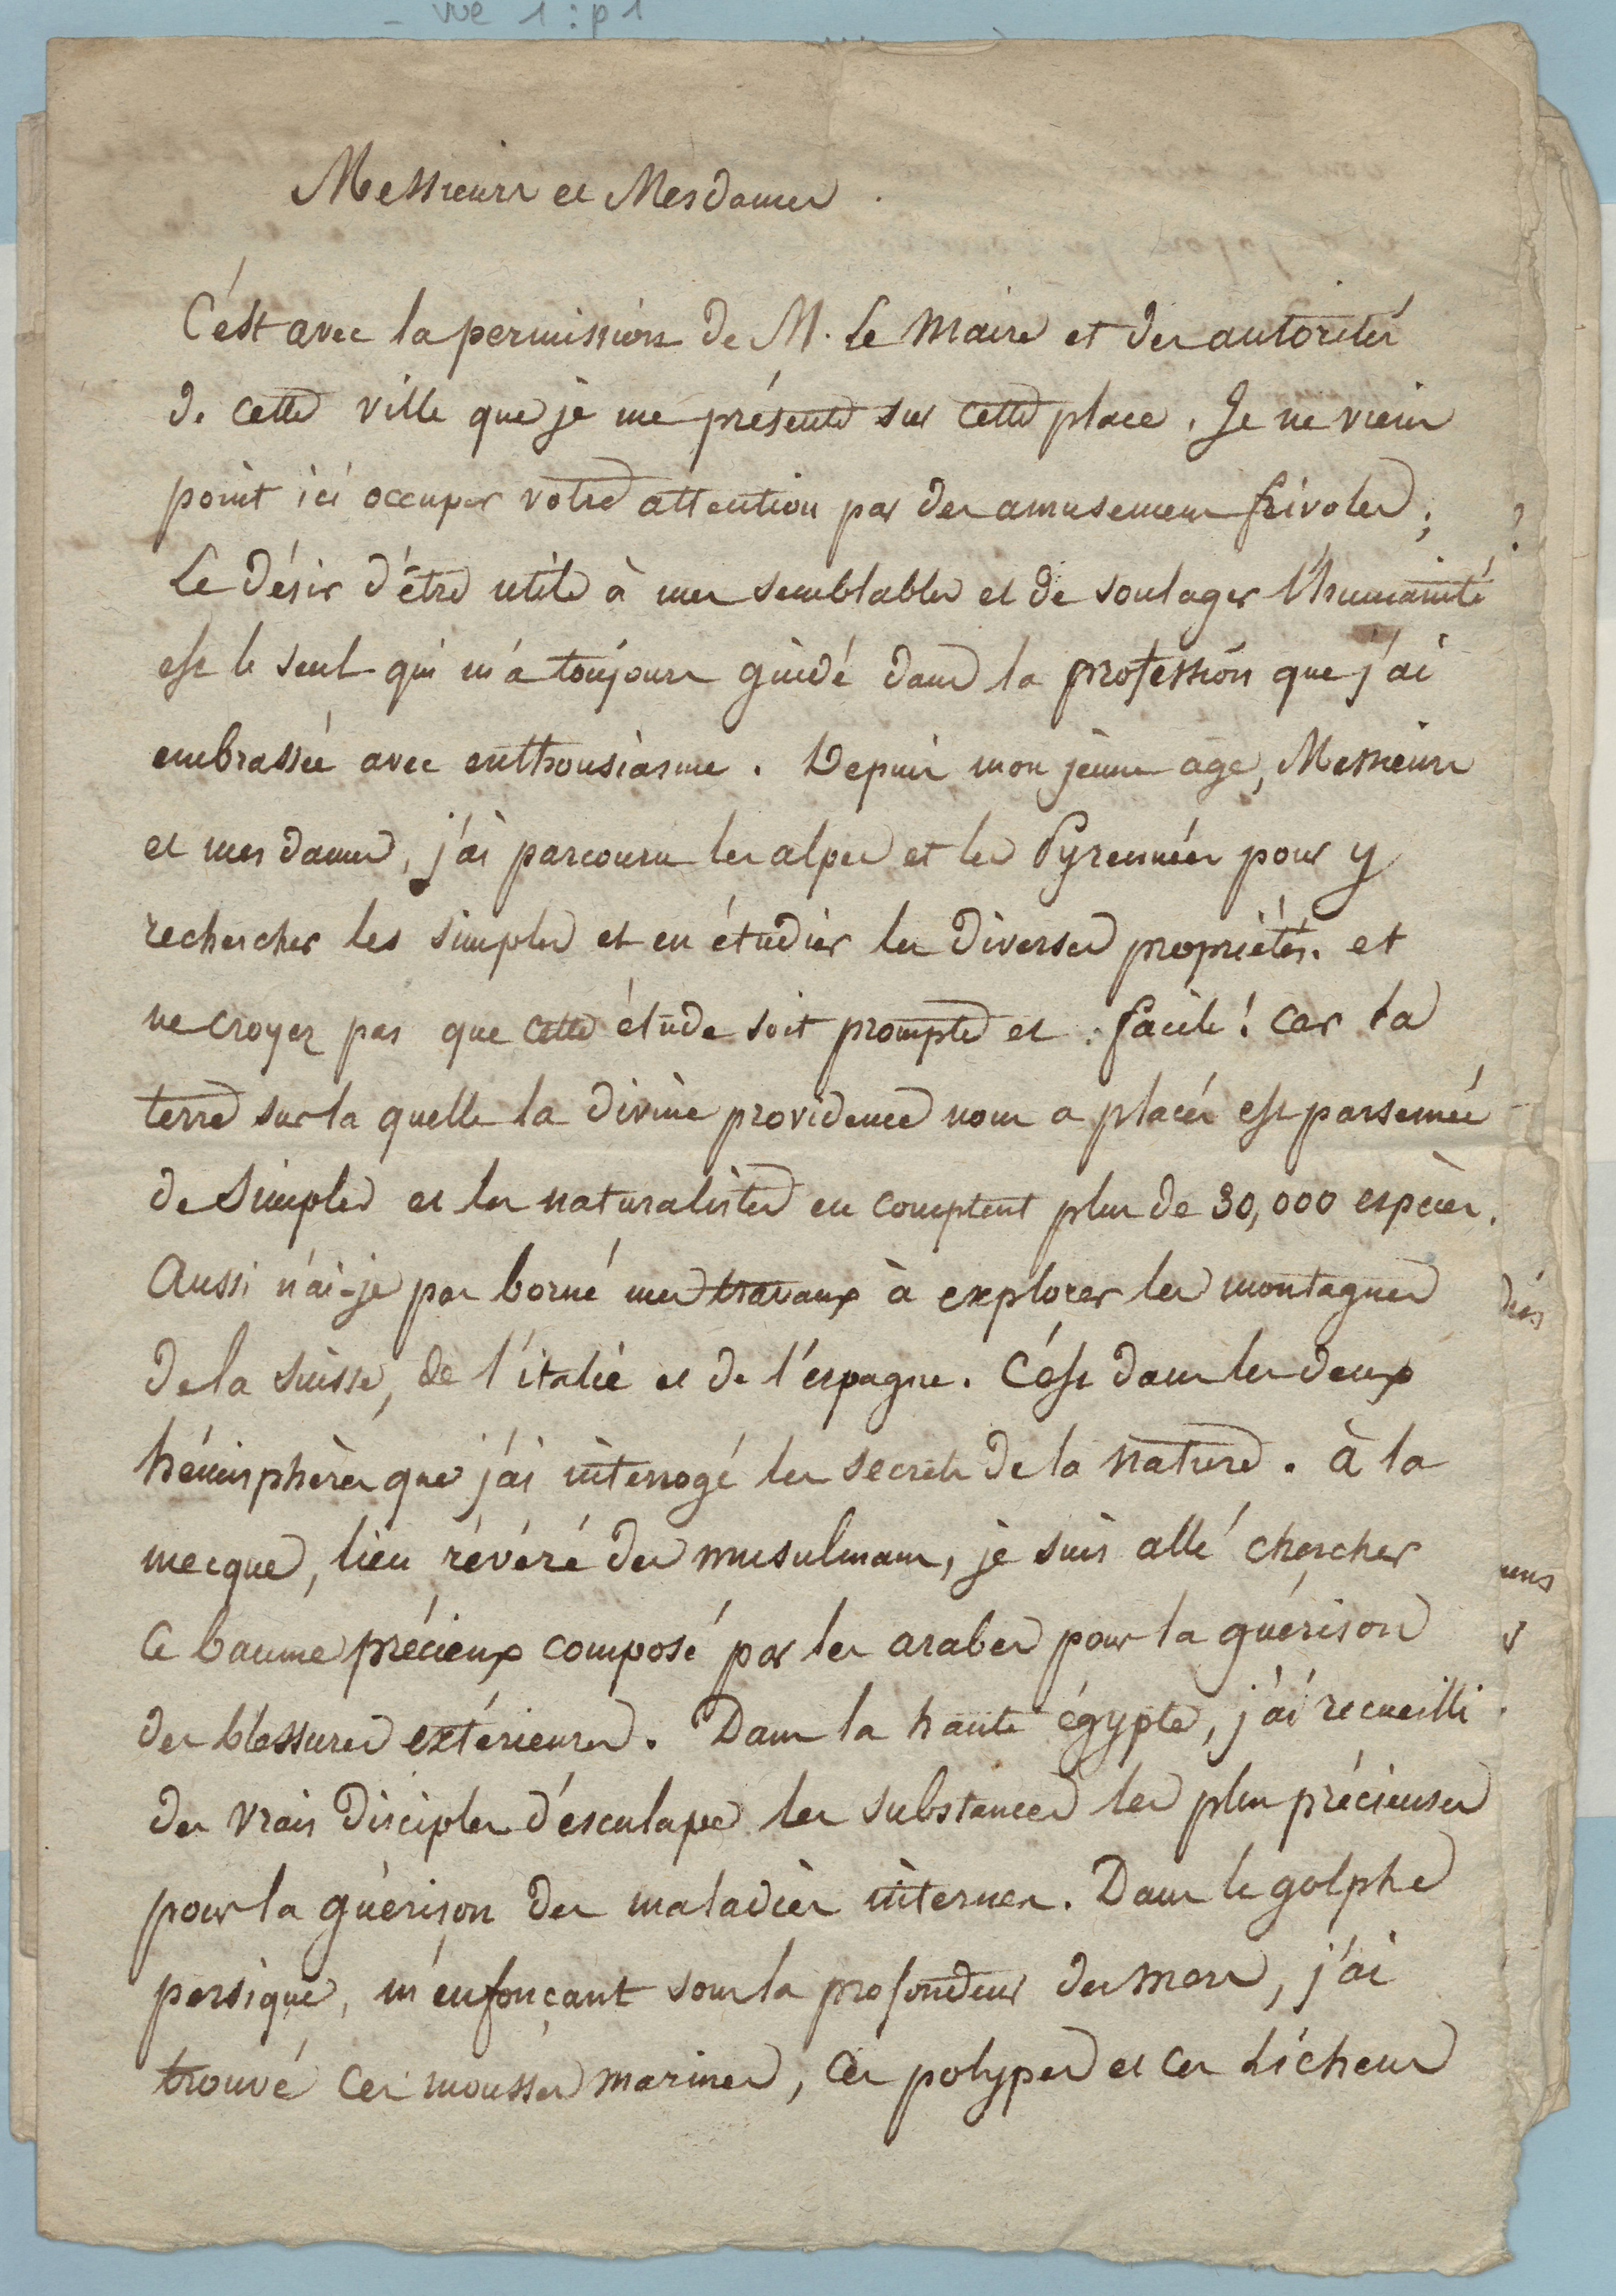 - vue 1 : p 1
Messieurs et Mesdames.
C'est avec la permission de M. Le Maire et des autorités
de cette ville que je me présente sur cette place. Je ne viens
point ici occuper votre attention par des amusemens frivoles;
Le désir d'être utile à mes semblables et de soulager l'humanité
est le seul qui m'a toujours guidé dans la profession que j'ai
embrassée avec enthousiasme. Depuis mon jeune age, Messieurs
et mes dames, j'ai parcouru les alpes et les Pyrennées pour y
rechercher les simples et en étudier les diverses propriétés. et
ne croyez pas que cette étude soit prompte et facile! car la
terre sur la quelle la divine providence nous a placés est parsemée
de simples et les naturalistes en comptent plus de 30,000 espèces.
Aussi n'ai-je pas borné mes travaux à explorer les montagnes
de la suisse, de l'italie et de l'espagne. C'est dans les deux
hémisphères que j'ai interrogé les secrets de la nature. à la
mecque, lieu révéré des musulmans, je suis allé chercher
ce baume précieux composé par les arabes pour la guérison
des blessures extérieures. Dans la haute égypte, j'ai recueilli
des vrais disciples d'esculape les substances les plus précieuses
pour la guérison des maladies internes. Dans le golphe
persique, m'enfonçant sous la profondeur des mers, j'ai
trouvé ces mousses marines, ces polypes et ces Lichens